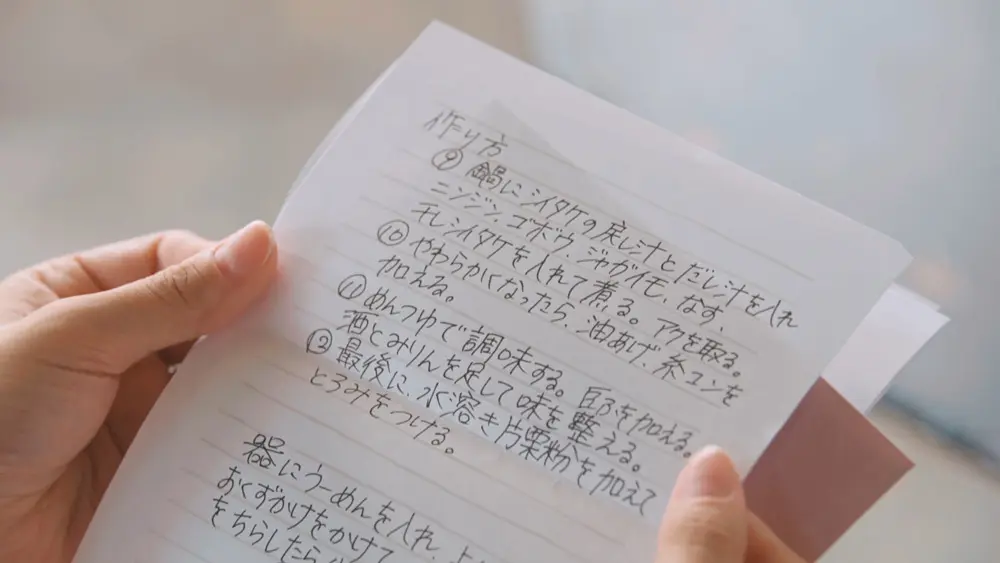 作り方
⑨ 鍋にシイタケの戻し汁とだし汁を入れ
ニンジン、ゴボウ、ジャガイモ、なす、
干しイタケを入れて煮る。アクを取る。
⑩ やわらかくなったら、油あげ、糸コンを
加える。
⑪ めんつゆで調味する。豆フを加える。
酒とみりんを足して味を整える。
⑫ 最後に、水溶き片栗粉を加えて
とろみをつける。
器にうーめんを入れ、
おくずかけをかけて
をちらしたら